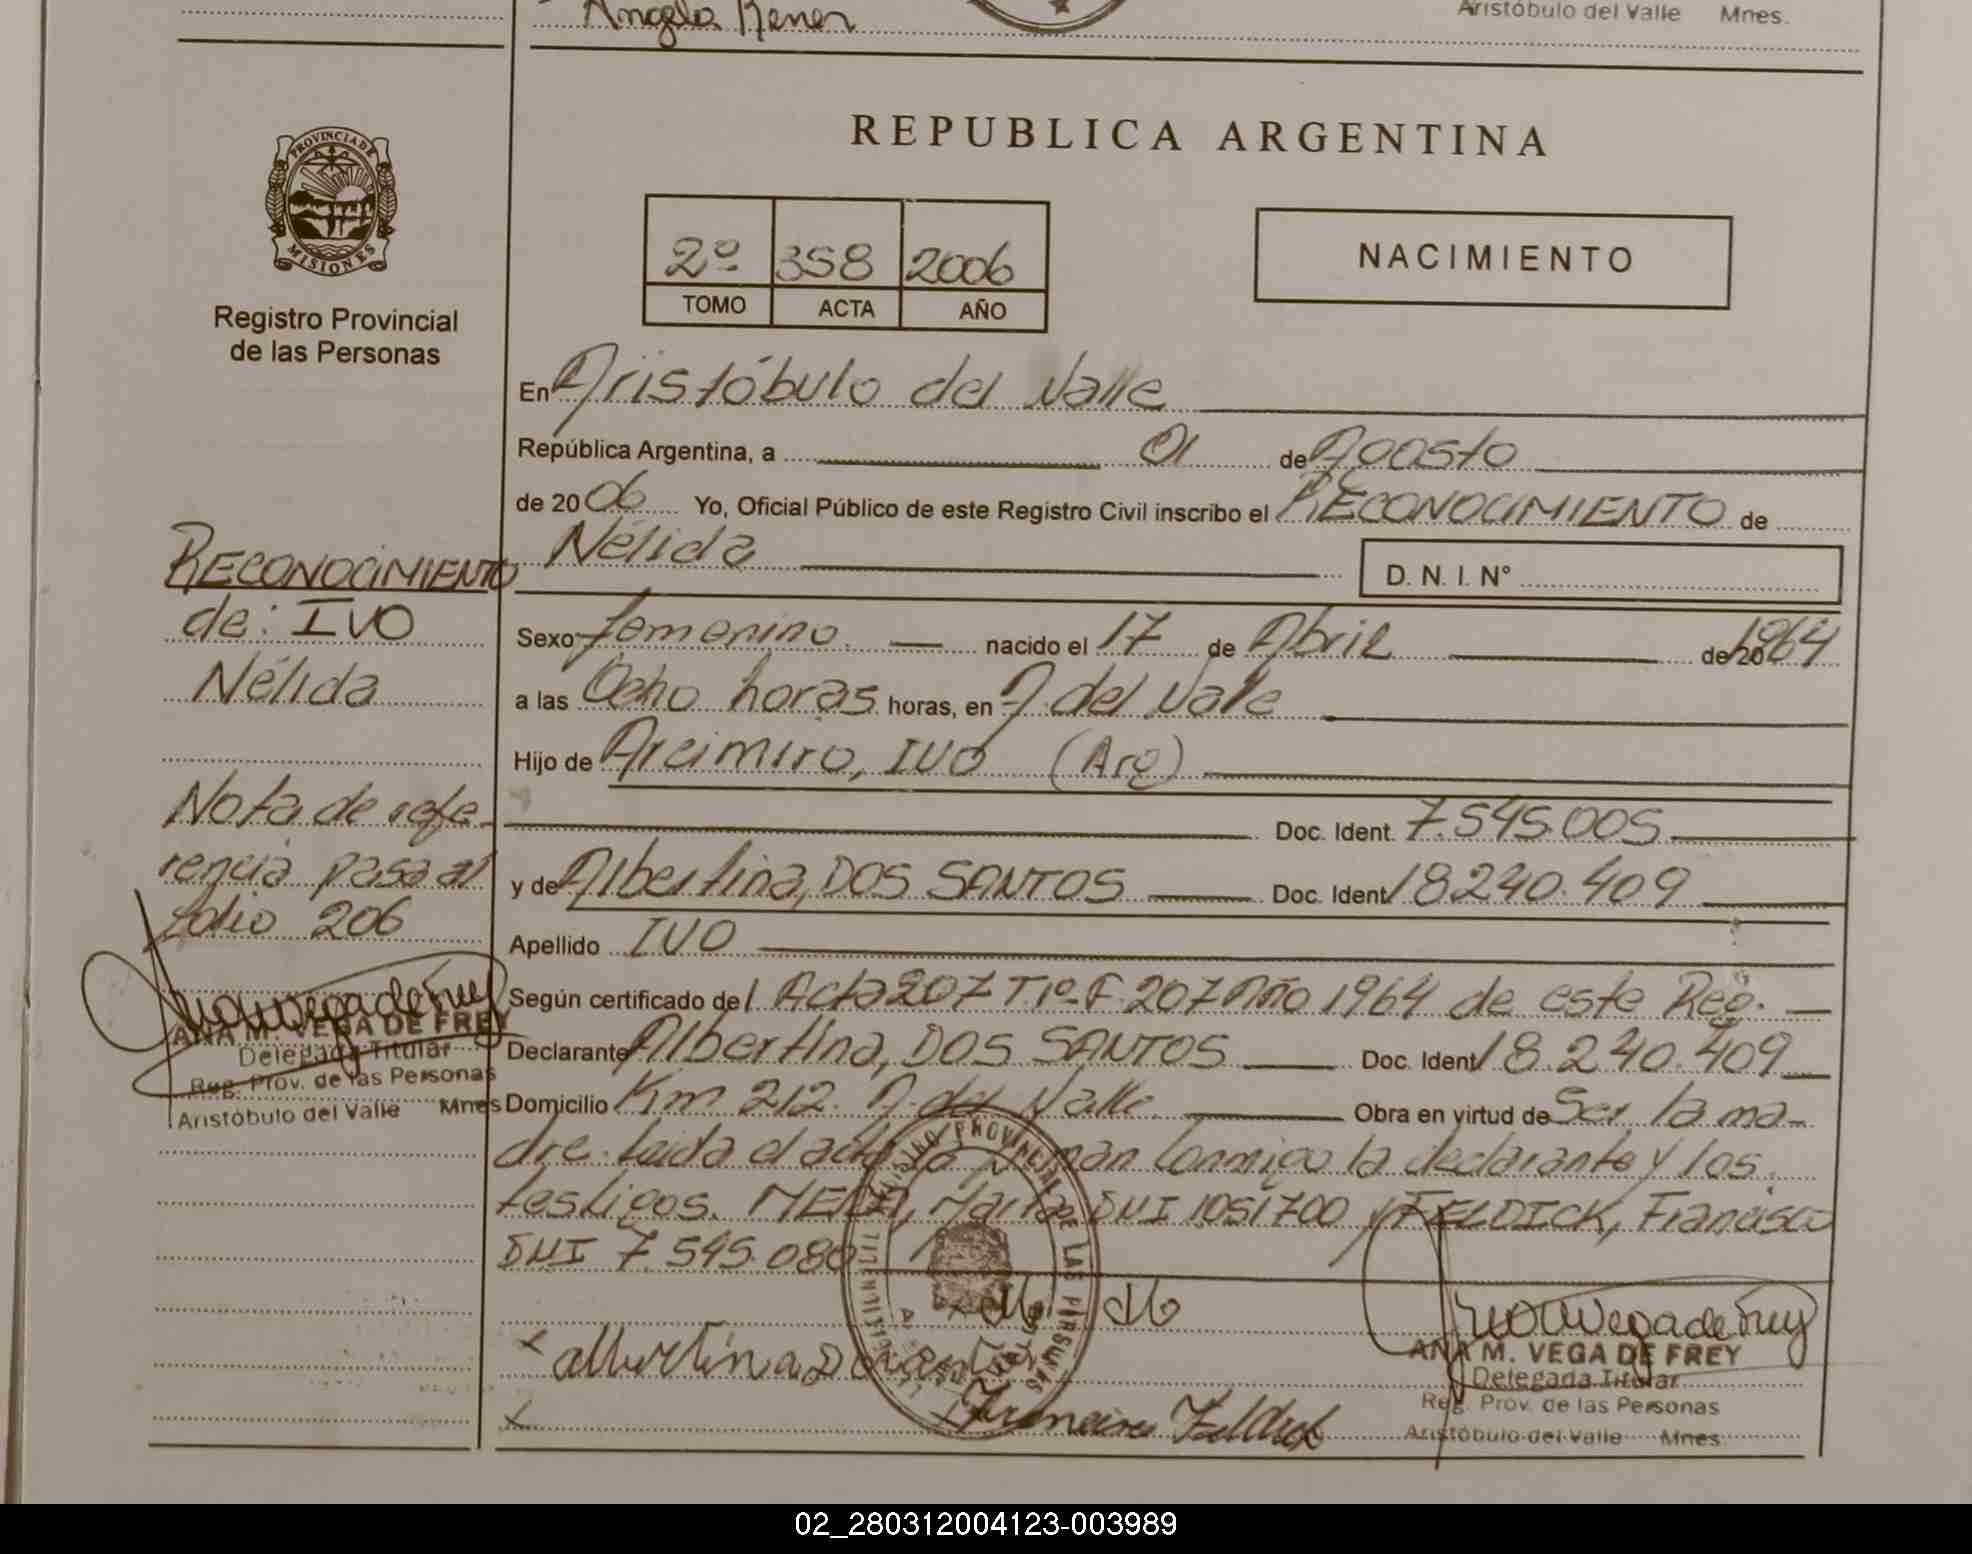 Angela Kener
Aristóbulo del Valle Mnes.
PROVINCIA DE
MISIONES
Registro Provincial
de las Personas
REPUBLICA ARGENTINA
2º 358 2006
TOMO ACTA AÑO
NACIMIENTO
En Aristóbulo del Valle
República Argentina, a 01 de Agosto
de 2006 Yo, Oficial Público de este Registro Civil inscribo el RECONOCIMIENTO de
Nélida D. N. I. N°
Sexo femenino. nacido el 17 de Abril de 20 1964
a las Ocho horas horas, en A. del Valle
Hijo de Arcimiro, IVO (Arg)
Doc. Ident. 7.545.005
y de Albertina, DOS SANTOS Doc. Ident 18.240.409
Apellido IVO
Según certificado del Acta 207 Tº 1º F. 207 Año 1964 de este Reg.
Declarante Albertina, DOS SANTOS Doc. Ident 18.240.409
Domicilio Km 212. A. del Valle Obra en virtud de Ser la ma-
dre. Leida el acta la firman conmigo la declarante y los
testigos. Marta DNI 1051700 y FELDICK, Francisco
DNI 7.545.080
RECONOCIMIENTO
de: IVO
Nélida
Nota de refe-
rencia pasa al
folio 206
ANA M. VEGA DE FREY
Delegada Titular
Reg. Prov. de las Personas
Aristóbulo del Valle Mnes
REGISTRO PROVINCIAL DE LAS PERSONAS
x Albertina D
x Francisco Feldick
ANA M. VEGA DE FREY
Delegada Titular
Reg. Prov. de las Personas
Aristóbulo del Valle Mnes
02_280312004123-003989